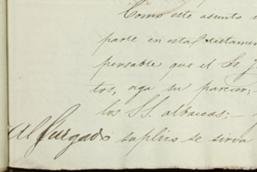 Como este asunto
parte en esta
pensable que el Se
tos, oga su parecer;
los S.S. albaceas;
Al Juzgado suplico se sirva